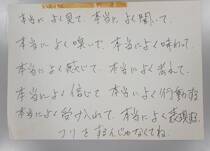 本当によく見て、本当によく聞いて、
本当によく嗅いで、本当によく味わって、
本当によく感じて、本当によく考えて、
本当によく信じて、本当によく行動する
本当によく受け入れて、本当によく表現する。
フリをするんじゃなくてね。